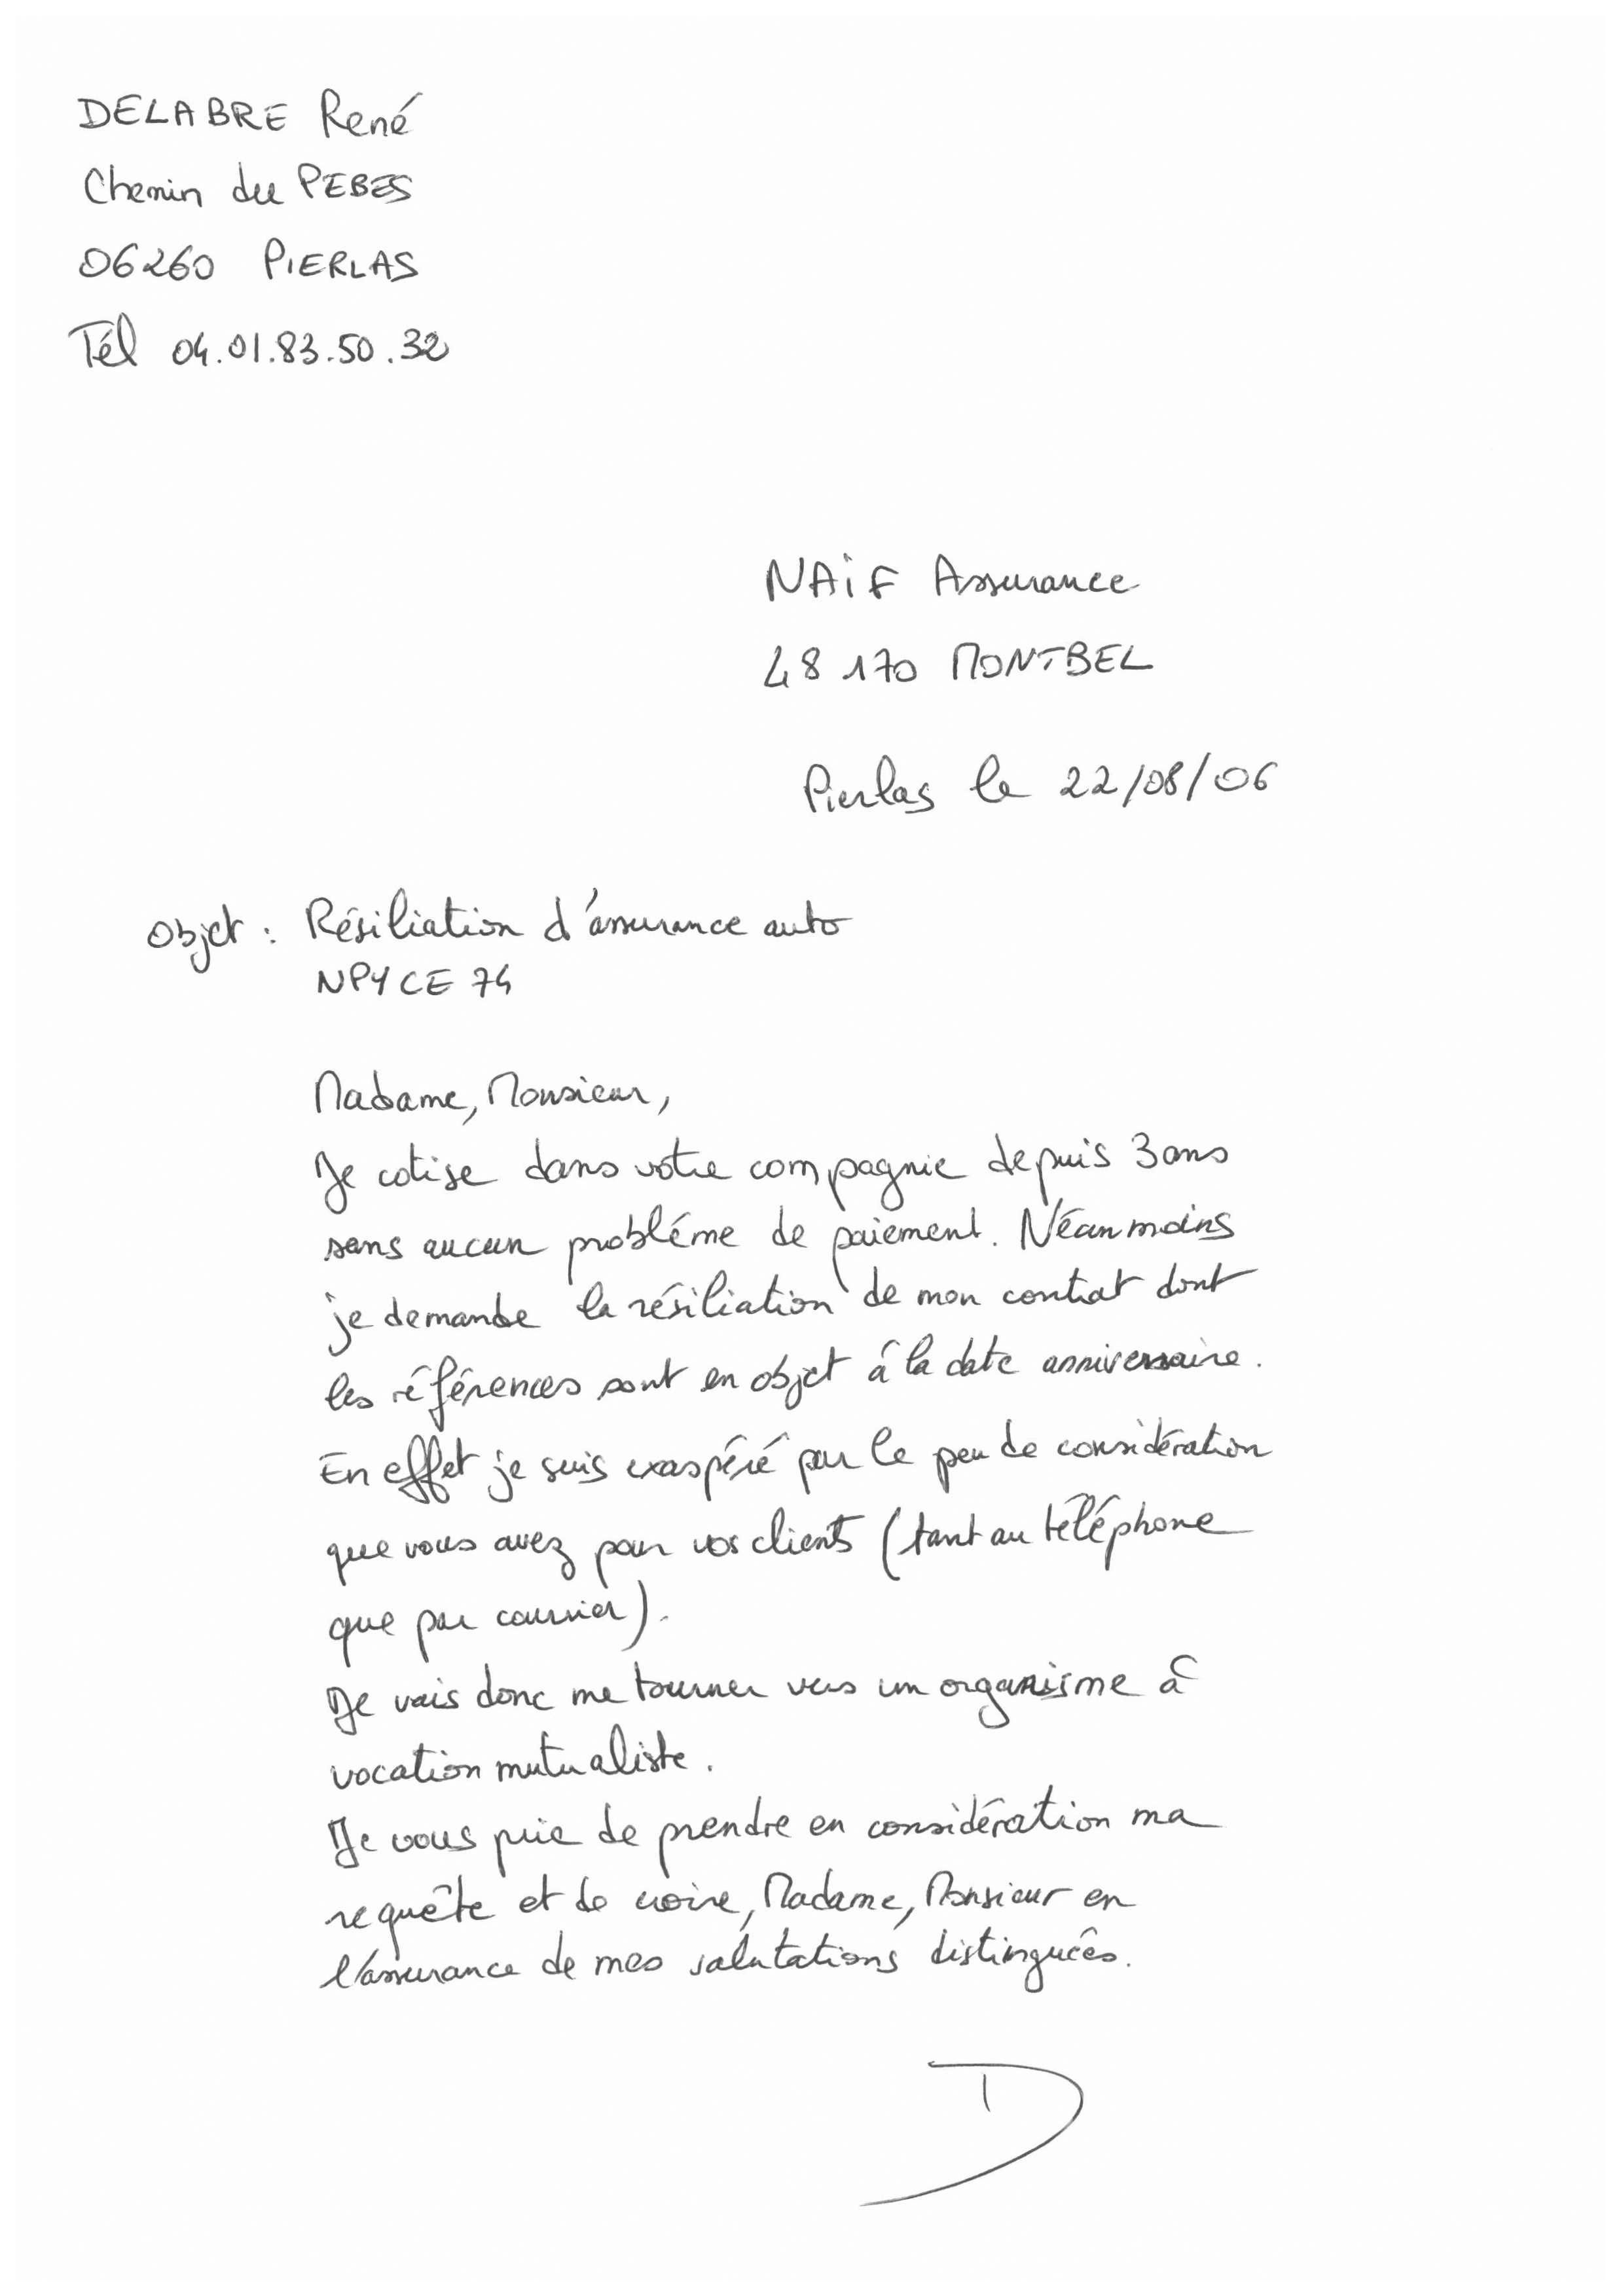 DELABRE René
Chemin du PEBES
06260 PIERLAS
Tél 04.01.83.50.32
NAiF Assurance
48170 MONTBEL
Pierlas le 22/08/06
Objet : Résiliation d'assurance auto
NPYCE 74
Madame, Monsieur,
Je cotise dans votre compagnie depuis 3 ans
sans aucun probléme de paiement. Néanmoins
je demande la résiliation de mon contrat dont
les références sont en objet á la date anniversaire.
En effet je suis exaspéré par le peu de considération
que vous avez pour vos clients (tant au téléphone
que par courrier).
Je vais donc me tourner vers un organisme à
vocation mutualiste.
Je vous prie de prendre en considération ma
requête et de croire, Madame, Monsieur en
l'assurance de mes salutations distinguées.
D